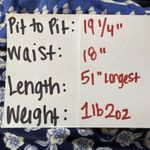 Pit to Pit: 19 1/4"
Waist: 18"
Length: 51" Longest
Weight: 1lb 2oz